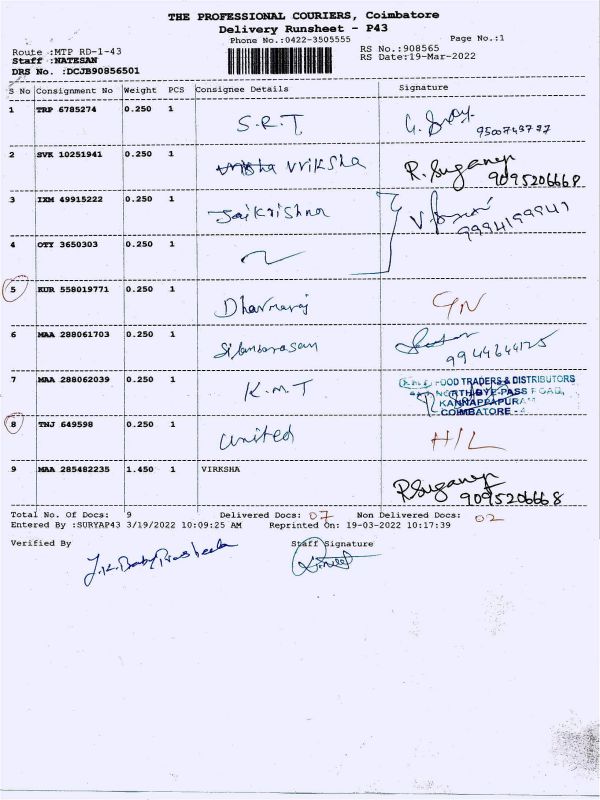 THE PROFESSIONAL COURIERS, Coimbatore
Delivery Runsheet - P43
Phone No.:0422-3505555 Page No.:1
Route :MTP RD-1-43 RS No.:908565
Staff :NATESAN RS Date:19-Mar-2022
DRS No. :DCJB90856501
S No Consignment No Weight PCS Consignee Details Signature
1 TRP 6785274 0.250 1
S.R.T
2 SVK 10251941 0.250 1 vriksha
R. Suganya
9095206668
3 IXM 49915222 0.250 1 Jaikrishna
9994199941
4 OTY 3650303 0.250 1
5 KUR 558019771 0.250 1
Dharmaraj
6 MAA 288061703 0.250 1
Silambarasan
9944644125
7 MAA 288062039 0.250 1
K.M.T
FOOD TRADERS & DISTRIBUTORS
NORTH BYE-PASS ROAD,
COIMBATORE
8 TNJ 649598 0.250 1
United H/L
9 MAA 285482235 1.450 1 VIRKSHA
R Suganya
9095206668
Total No. Of Docs: 9 Delivered Docs: 07 Non Delivered Docs: 02
Entered By :SURYAP43 3/19/2022 10:09:25 AM Reprinted On: 19-03-2022 10:17:39
Verified By Staff Signature